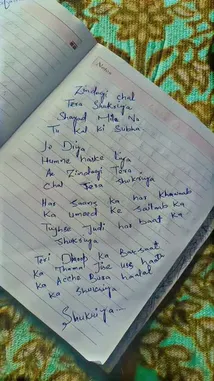 Notes
Zindagi chal
Tera Shukriya
Shayad Mile Na
Tu Kal Ki Subha
Je Diya
Humne haske liya
Ae Zindagi Tera
Chal Tera Shukriya
Har Saans ka har Khawab
Ka umeed ke sailab ka
Tujhse Judi har baat ka
Shukriya
Teri Dhoop ka Barsaat
Ka Thama Jine wo haath
Ka Acche Bure haalat
Ka Shukriya
Shukriya